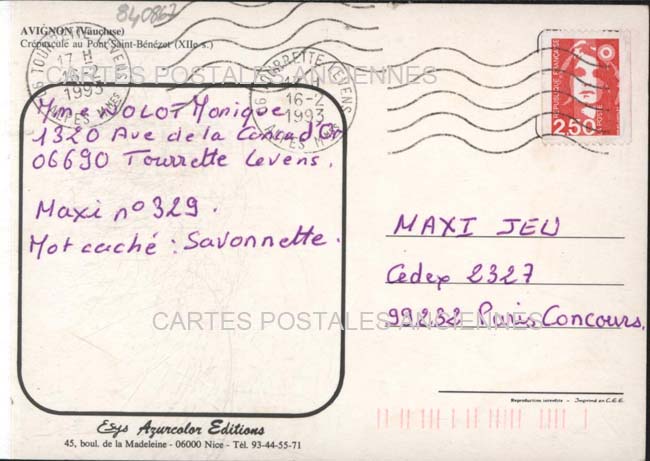 840867
AVIGNON (Vaucluse)
Crépuscule au Pont Saint-Bénézet (XIIe s.)
06 TOURRETTE LEVENS
17 H
1993
ALPES MMES
06 TOURRETTE LEVENS
16-2
1993
ALPES MMES
REPUBLIQUE FRANÇAISE
2,50
CARTES POSTALES ANCIENNES
Mme Monique
1320 Ave de la
06690 Tourrette Levens.
Maxi n° 329.
Mot caché : Savonnette.
MAXI JEU
Cedex 2327
99232 Paris Concours.
CARTES POSTALES ANCIENNES
Reproduction interdite - Imprimé en C.E.E.
Esys Azurcolor Editions
45, boul. de la Madeleine - 06000 Nice - Tél. 93-44-55-71